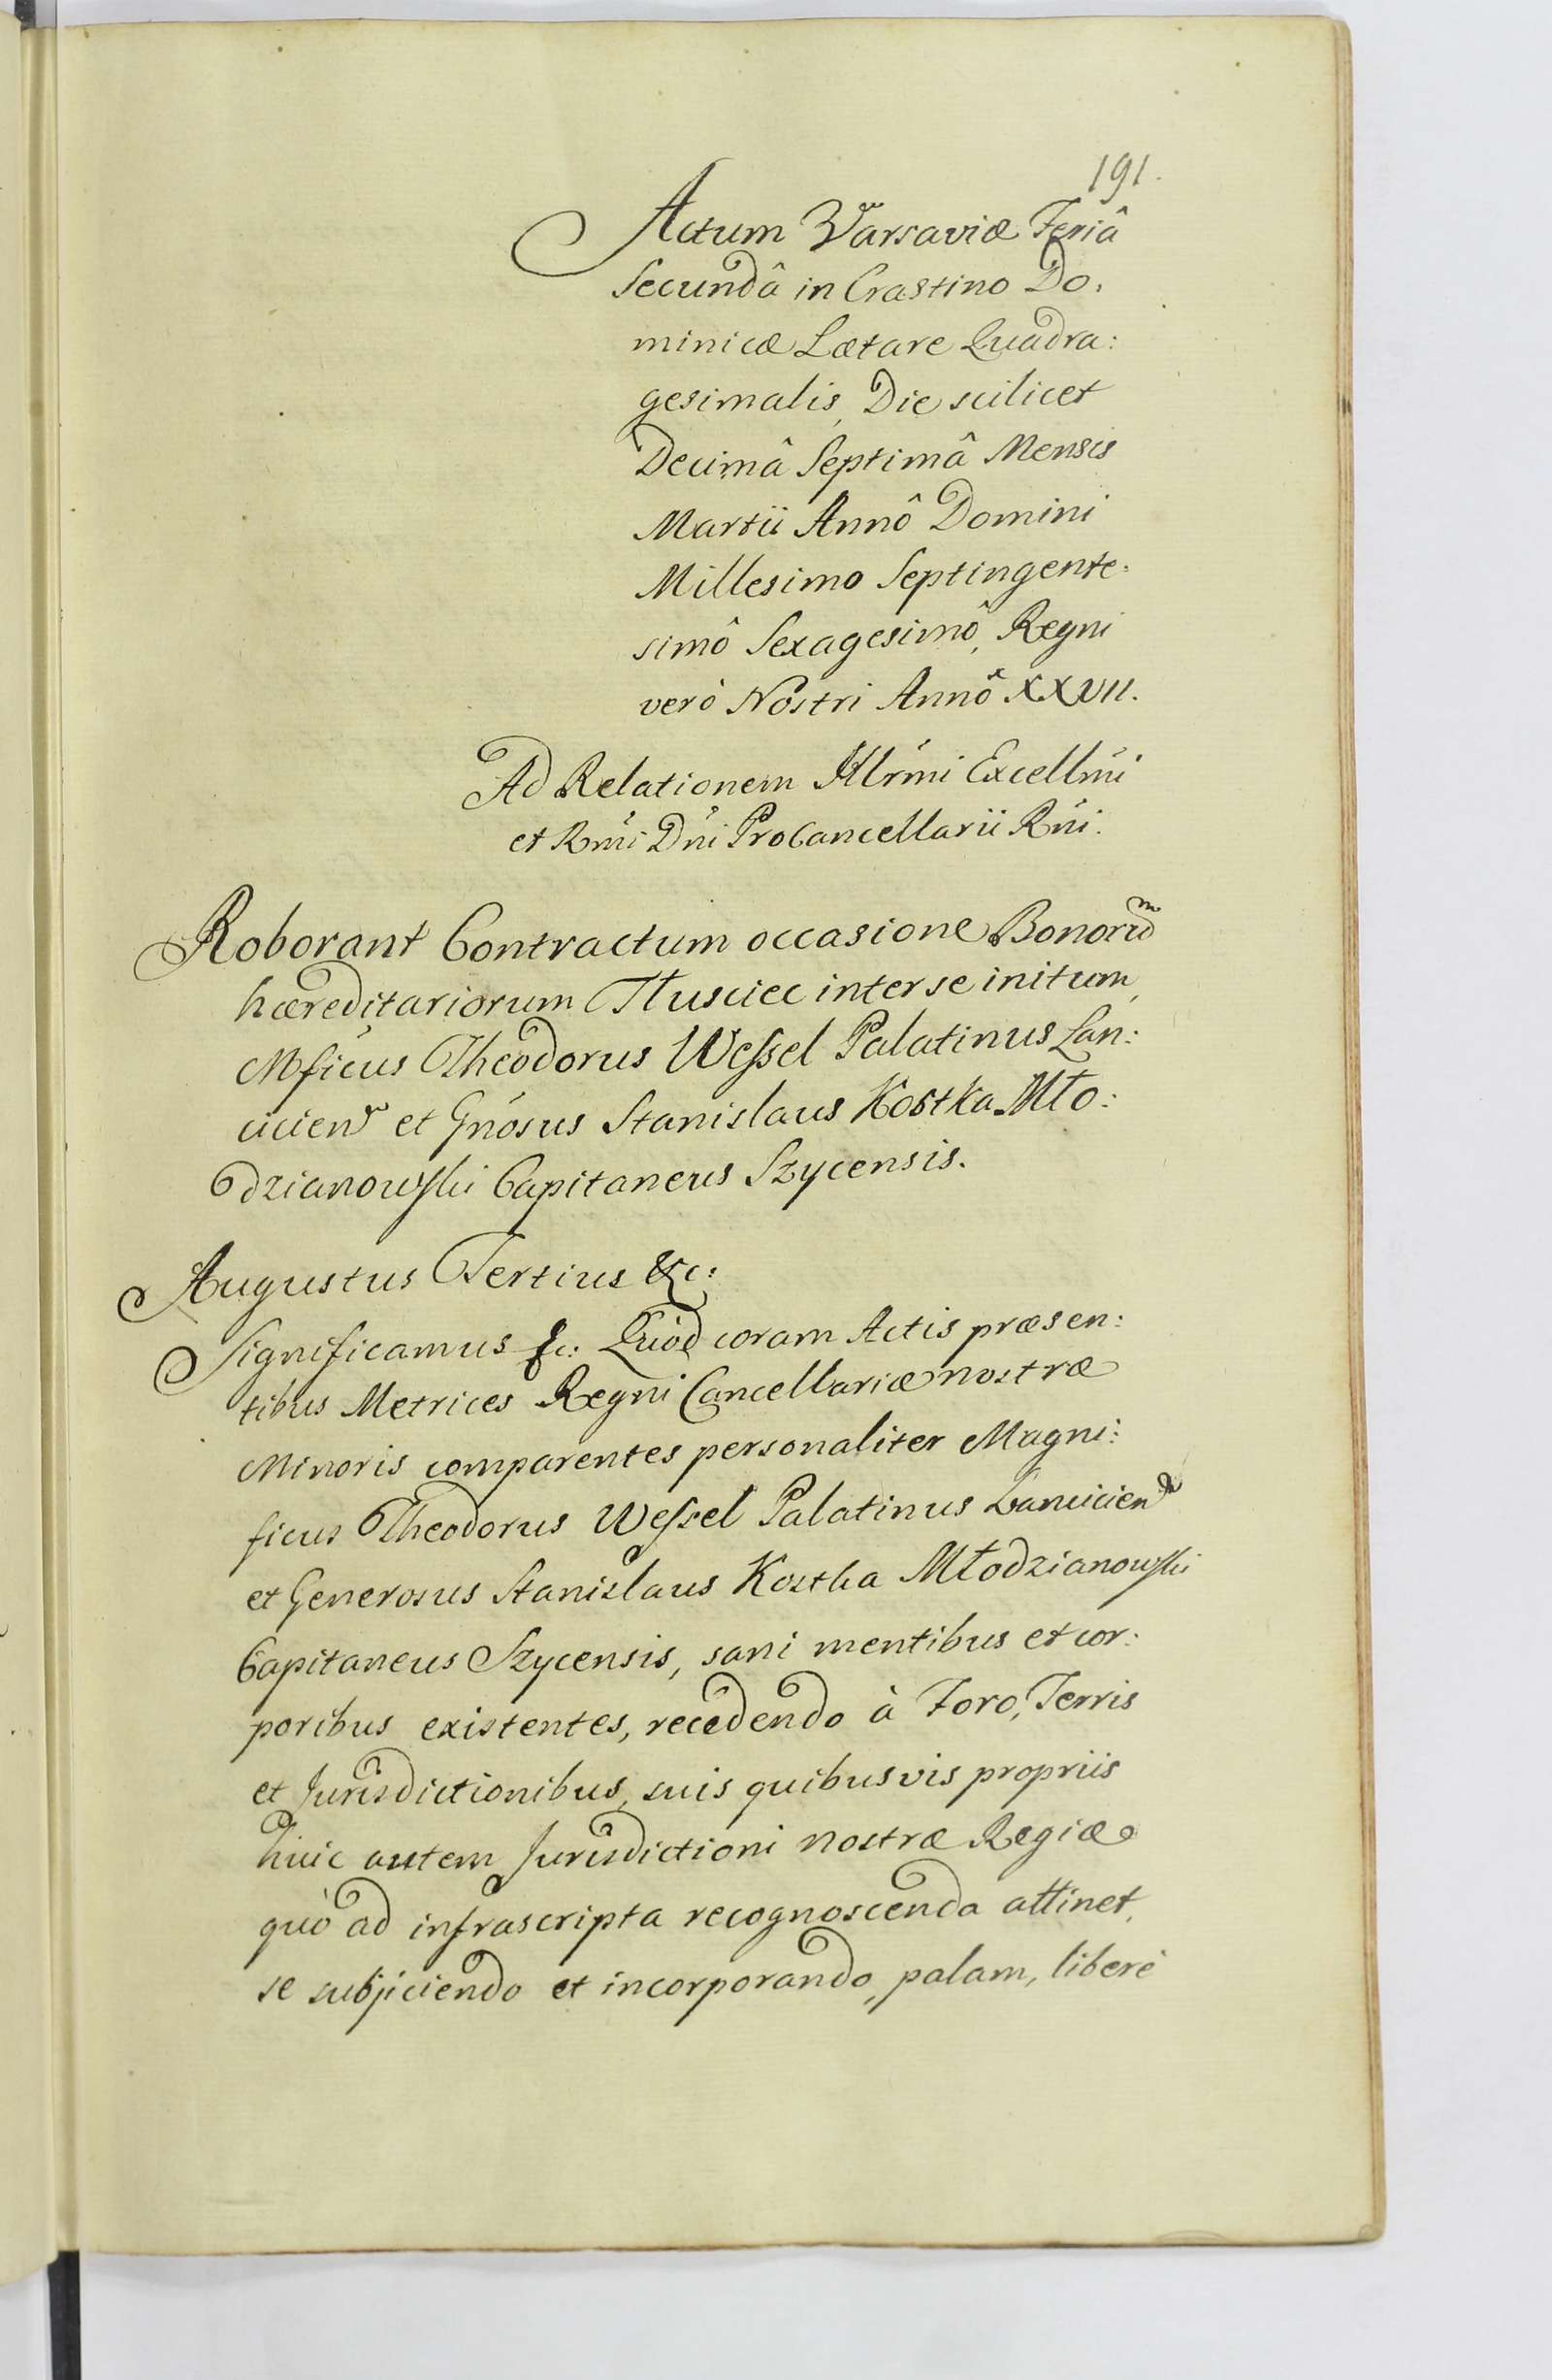 191.
Actum Varsaviæ Feriâ
Secundâ in Crastino Do,
minicæ Lætare Quadra:
gesimalis, Die scilicet
Decimâ Septimâ Mensis
Martii Annô Domini
Millesimo Septingente:
simô Sexagesimô, Regni
verò Nostri Annô XXVII.
Ad Relationem Illrmi Excellmi
et Rmi Dni ProCancellarii Rni.
Roborant Contractum occasione Bonorum
hæreditariorum Tłusciec inter se initum,
Mficus Theodorus Wessel Palatinus Lan:
cicien et Gnosus Stanislaus Kostka Mło:
dzianowski Capitaneus Szycensis.
Augustus Tertius &c:
Significamus &c: Quod coram Actis præsen:
tibus Metrices Regni Cancellariæ nostræ
Minoris comparentes personaliter Magni:
ficus Theodorus Wessel Palatinus Lancicien
et Generosus Stanislaus Kostka Młodzianowski
Capitaneus Szycensis, sani mentibus et cor:
poribus existentes, recedendo à Foro, Terris
et Jurisdictionibus, suis quibusvis propriis
huic autem Jurisdictioni nostræ Regiæ
quò ad infrascripta recognoscenda attinet,
se subjiciendo et incorporando, palam, liberè